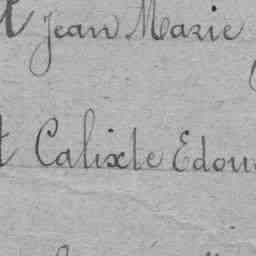 Jean Marie
Calixte Edou